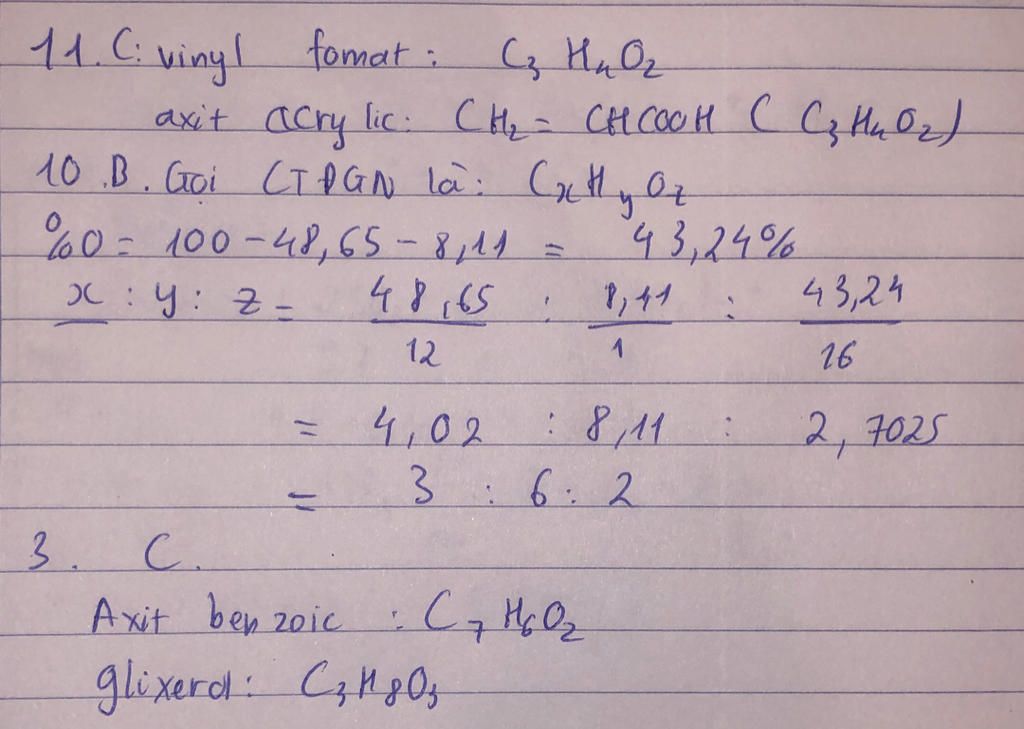 11. C: vinyl fomat: C₃H₄O₂
axit acrylic: CH₂=CHCOOH (C₃H₄O₂)
10.B. Gọi CTĐGN là: CxHyOz
%O = 100-48,65-8,11 = 43,24%
x : y : z = 48,65/12 : 8,11/1 : 43,24/16
= 4,02 : 8,11 : 2,7025
= 3 : 6 : 2
3. C.
Axit benzoic : C₇H₆O₂
glixerol: C₃H₈O₃